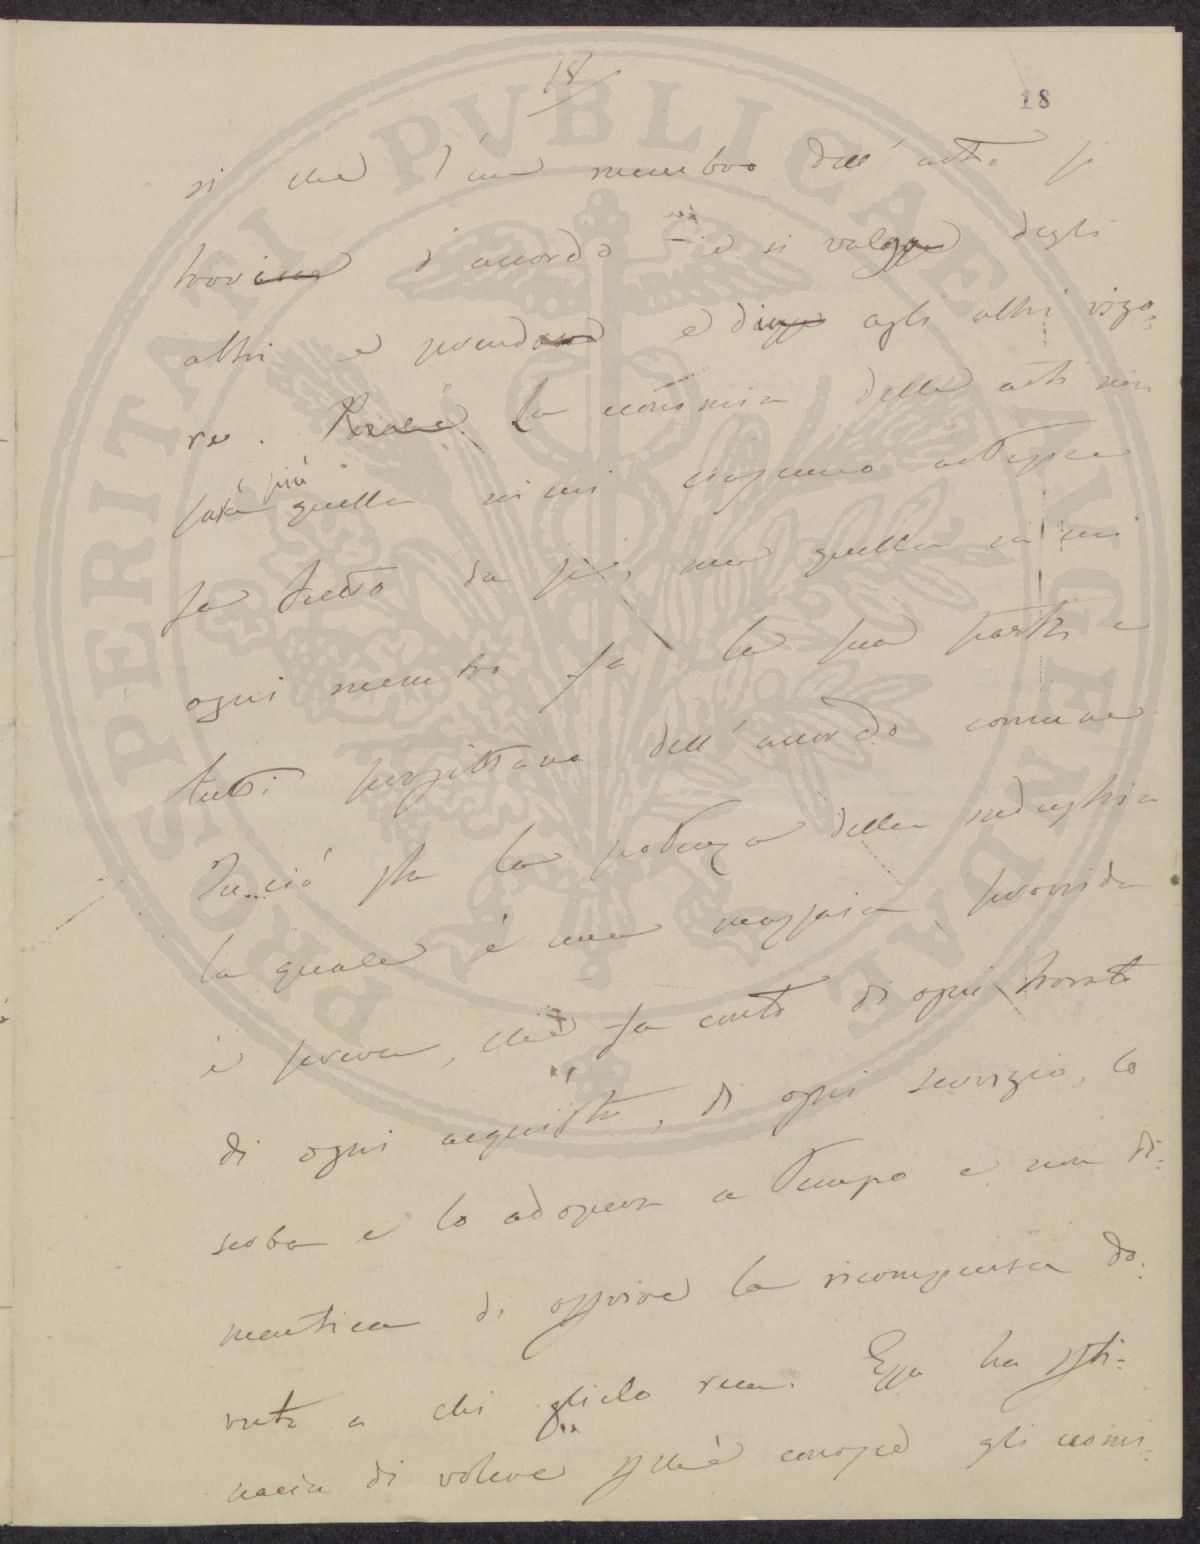 18
18
si che l'un membro dell'arte si
trovi d'accordo e si valga degli
altri e prenda e dia agli altri vigo-
re. La economia delle arti non
sarà più quella in cui ciascuno artefice
fa tutto da sé, ma quella in cui
ogni membro fa la sua parte e
tutti profittano dell'accordo comune
In ciò sta la potenza della industria
la quale è una massaia provvida
e severa, che fa conto di ogni trovato
di ogni acquisto, di ogni servizio, lo
serba e lo adopera a tempo e non di-
mentica di offrire la ricompensa do-
vuta a chi glielo reca. Essa ha
di volere perchè conosce gli uomi-
PROSPERITATI PVBLICAE AVGENDAE